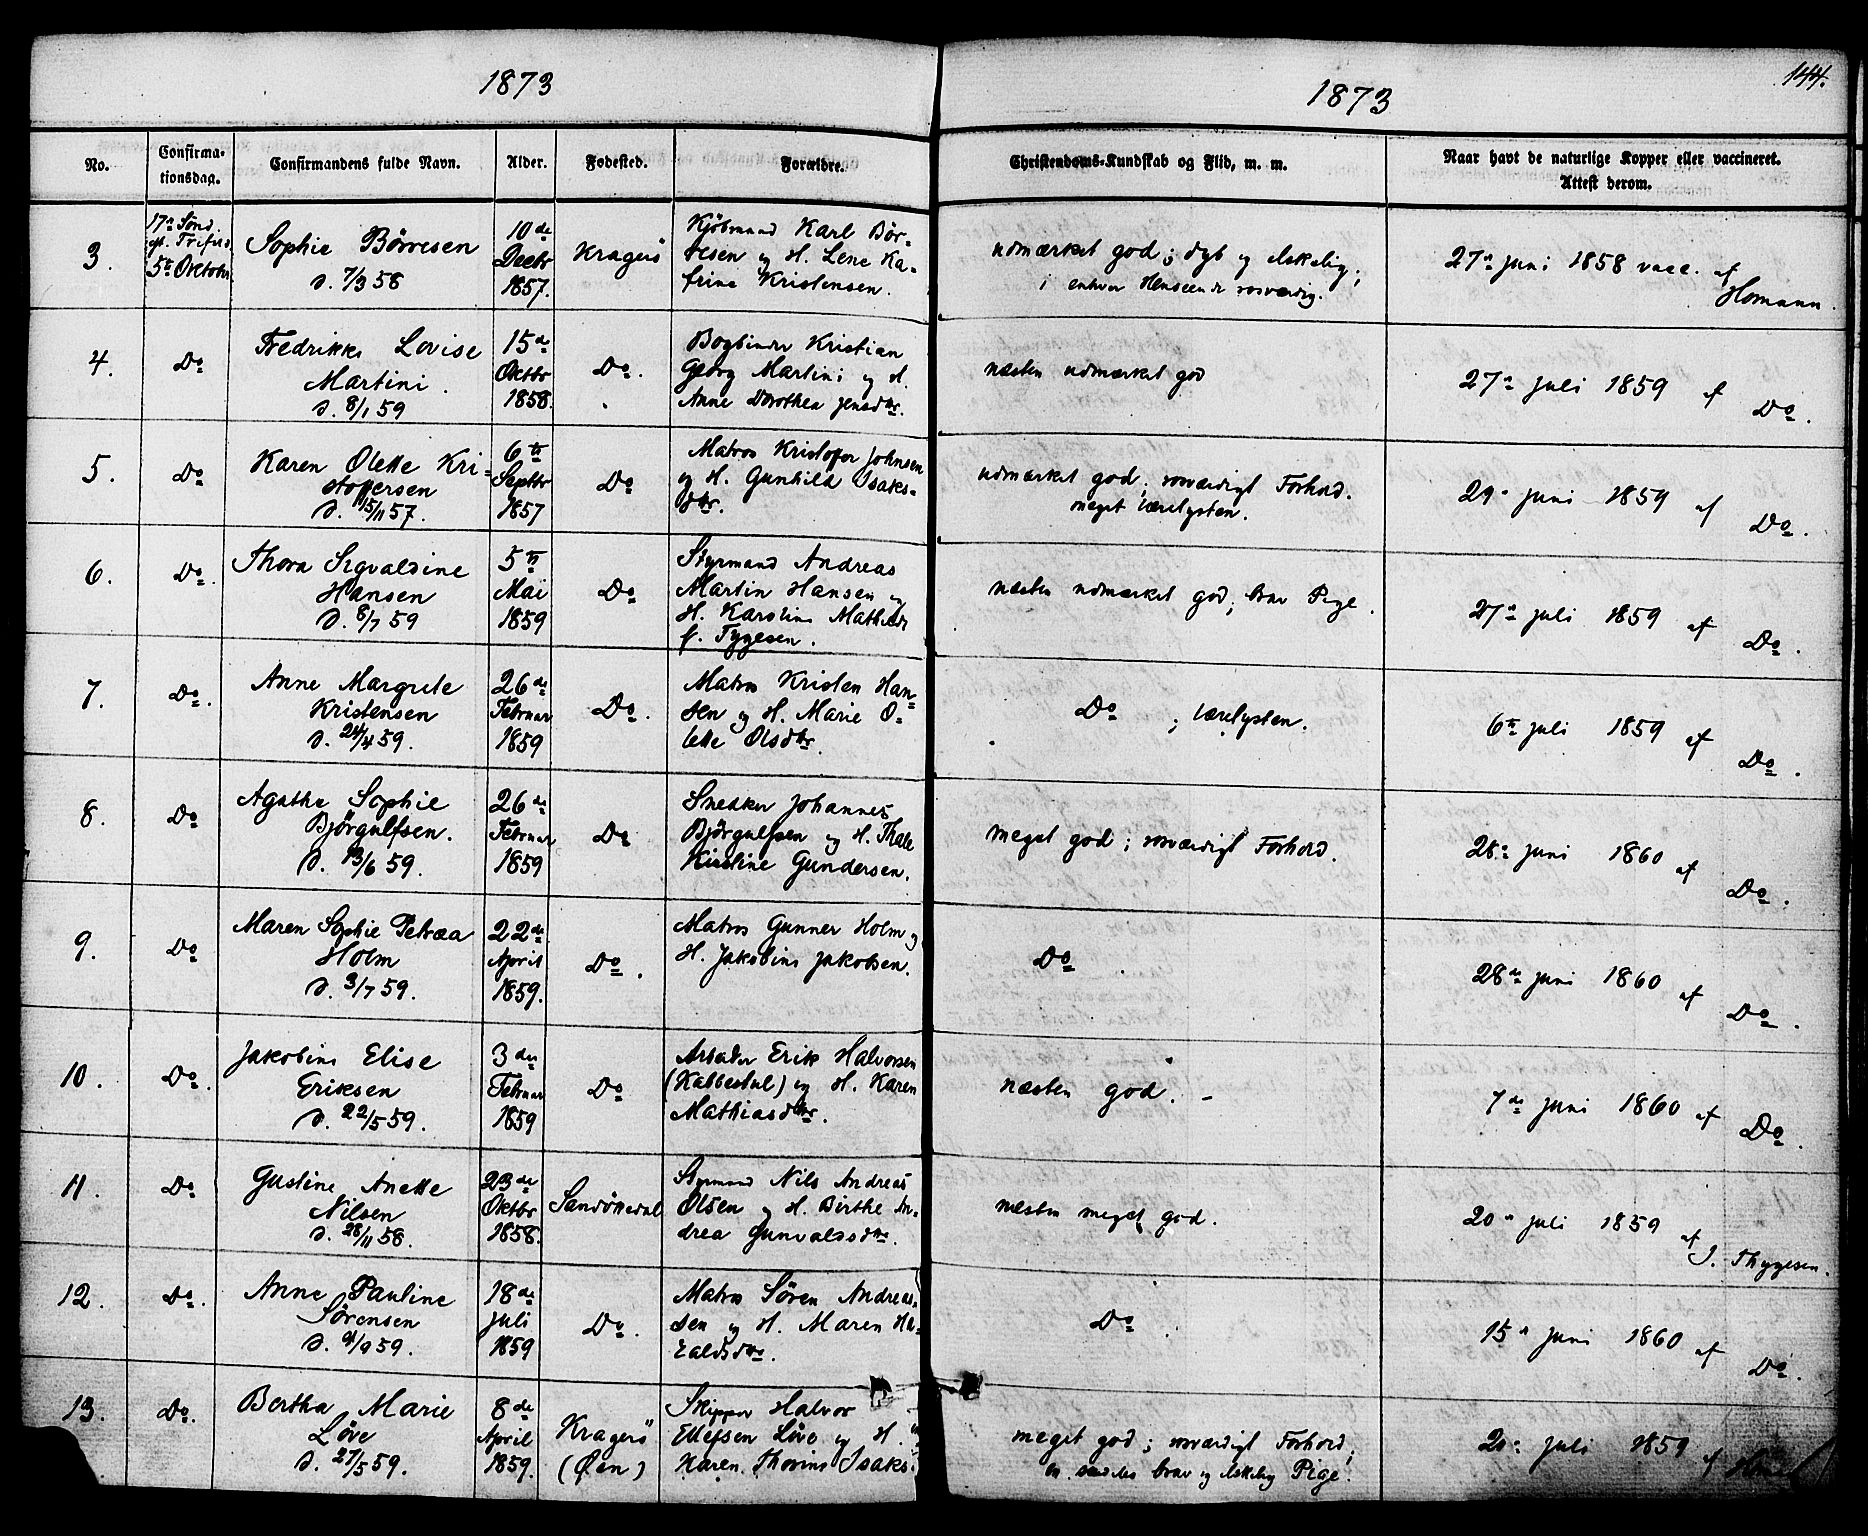 1873
1873
144.
No.
Confirma-
tionsdag.
Confirmandens fulde Navn.
Alder.
Fødested.
Forældre.
Christendoms-Kundskab og Flid, m. m.
Naar havt de naturlige Kopper eller vaccineret.
Attest derom.
3.
17n Sønd.
5te Oktober
Sophie Börresen
d. 7/3 58
10de
Decbr
1857.
Kragerö
Kjöbmand Karl Bör-
resen og H. Lene Ka-
trine Kristensen.
udmærket god; dyb og elskelig;
i enhver Henseende rosværdig.
27n Juni 1858 vacc. af
Homann.
4.
Do
Fredrikke Lovise
Martini.
d. 8/1 59
15de
Oktbr
1858.
Do.
Bogbinder Kristian
Georg Martini og H.
Anne Dorothea Jensdtr.
næsten udmærket god
27n Juli 1859 af
Do.
5.
Do
Karen Olette Kri-
stoffersen
d. 15/11 57.
6te
Septbr
1857
Do
Matros Kristofer Johnsen
og H. Gunhild Isaks-
dtr.
udmærket god; rosværdigt Forhold.
meget lærelysten.
29n Juni 1859 af
Do.
6.
Do.
Thora Sigvaldine
Hansen
d. 8/7 59
5te
Mai
1859
Do
Styrmand Andreas
Martin Hansen og
H. Karoline Mathilde
f. Tygesen.
næsten udmærket god; brav Pige.
27n Juli 1859 af
Do.
7.
Do.
Anne Margrete
Kristensen
d. 24/4 59.
26de
Februar
1859
Do.
Matros Kristen Han-
sen og H. Marie O-
lette Olsdtr.
Do ; lærelysten.
6te Juli 1859 af
Do.
8.
Do
Agathe Sophie
Björgulfsen.
d. 13/6 59.
26de
Februar
1859
Do
Snedker Johannes
Björgulfsen og H. Thale
Kirstine Gundersen.
meget god; rosværdigt Forhold.
28n Juni 1860 af
Do.
9.
Do
Maren Sophie Petræa
Holm
d. 3/7 59.
22de
April
1859.
Do.
Matros Gunner Holm og
H. Jakobine Jakobsen.
Do.
28de Juni 1860 af
Do.
10.
Do.
Jakobine Elise
Eriksen
d. 22/5 59.
3die
Februar
1859
Do
Arbeider Erik Halvorsen
(Kabbestul) og H. Karen
Mathiasdtr.
næsten god. -
7de Juni 1860 af
Do.
11.
Do
Gustine Anette
Nilsen
d. 28/11 58.
23de
Oktbr
1858.
Sandökedal
Styrmand Nils Andreas
Olsen og H. Birthe An-
drea Gunvaldsdtr.
næsten meget god.
20n Juli 1859 af
J. Thygesen.
12.
Do.
Anne Pauline
Sörensen
d. 4/9 59.
18de
Juli
1859
Do.
Matros Sören Andreas-
sen og H. Maren Ha-
raldsdtr.
Do.
15n Juni 1860 af
Do.
13.
Do.
Bertha Marie
Löve
d. 27/5 59.
8de
April
1859.
Kragerö
(Øen)
Skipper Halvor
Ellefsen Löve og H.
Karen Thorine Isaks-
meget god; rosværdigt Forhold;
en særdeles brav og elskelig Pige.
20n Juli 1859 af